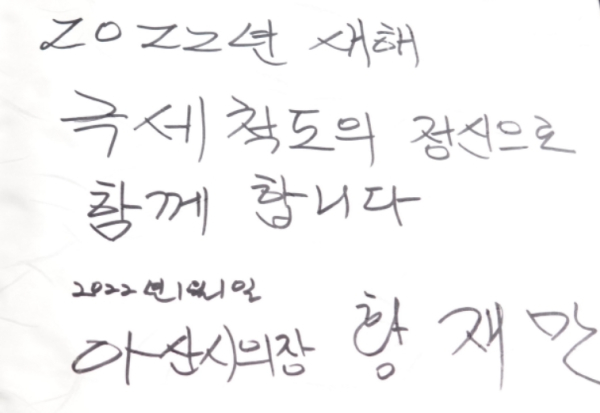 2022년 새해
극세척도의 정신으로
함께 합니다
2022년 1월 1일
아산시의장 황재만